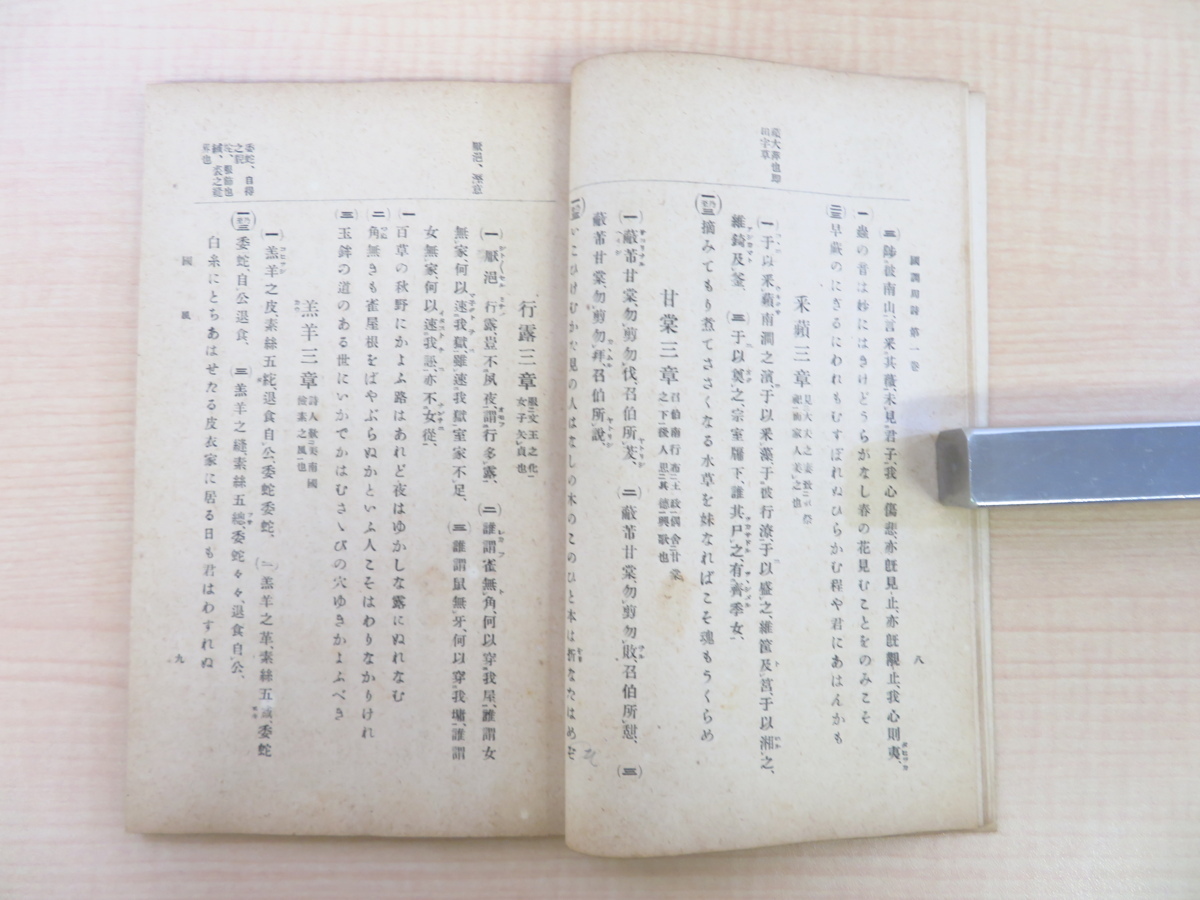 國調周詩 第一卷
八
蘋大萍也卽
田字草
㊂陟彼南山、言釆其薇、未見君子、我心傷悲、亦旣見止、亦旣覯止、我心則夷、
一蟲の音は秒にはきけどうらがなし春の花見むことをのみこそ
二三早蕨のにぎるにわれもむすぼれぬひらかむ程や君にあはんかも
釆蘋三章
(一)于以釆蘋、南澗之濱、于以釆藻、于彼行潦、(二)于以盛之、維筐及筥、于以湘之、
維錡及釜、(三)于以奠之、宗室牖下、誰其尸之、有齊季女、
摘みてもり煮てささくなる水草を妹なればこそ魂もうくらめ
甘棠三章 召伯南行布二王政一偶舍二甘棠
之下一後人思二其德一興歌也
(一)蔽芾甘棠、勿剪勿伐、召伯所茇、(二)蔽芾甘棠、勿剪勿敗、召伯所憩、(三)
蔽芾甘棠、勿剪勿拜、召伯所說、
厭浥、溼意
行露三章 服二文王之化一
女子矢貞也
(一)厭浥行露、豈不夙夜、謂行多露、(二)誰謂雀無角、何以穿我屋、誰謂女
無家、何以速我獄、雖速我獄、室家不足、(三)誰謂鼠無牙、何以穿我墉、誰謂
女無家、何以速我訟、亦不女從、
一百草の秋野にかよふ路はあれど夜はゆかしな露にぬれなむ
二角無きも雀屋根をばやぶらぬかといふ人こそはわりなかりけれ
三玉鉾の道のある世にいかでかはむさゝびの穴ゆきかよふべき
羔羊三章 詩人歎二美南國
儉素之風一也
(一)羔羊之皮、素絲五紽、退食自公、委蛇委蛇、(二)羔羊之革、素絲五緎、委蛇
委蛇、自公退食、(三)羔羊之縫、素絲五總、委蛇々々、退食自公、
白糸にとちあはせたる皮衣家に居る日も君はわすれぬ
委蛇、自得
之貌
國風
九